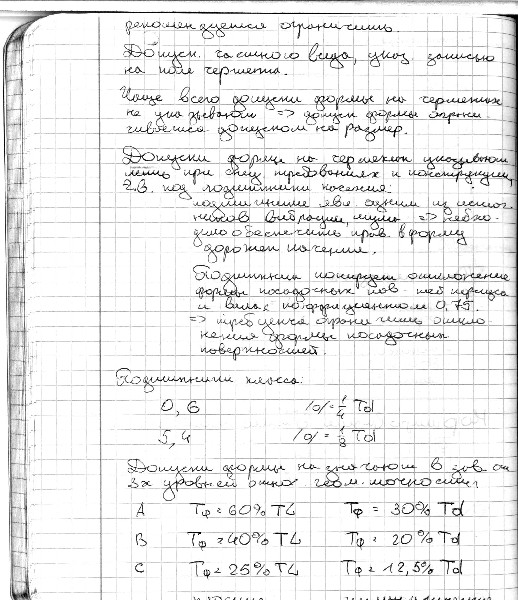 рекомендуется ограничить.
Допуск. частного вида, указ. записью
на поле чертежа.
Чаще всего допуски формы на чертежах
не указывают => допуск формы ограни
чивается допуском на размер.
Допуски формы на чертежах указывают
лишь при спец. требованиях к конструкции,
т.в. под подшипники качения:
подшипники явл. одним из источ
ников вибрации, шума => необхо
димо обеспечить прав. форму
дорожек качения.
Подшипник копирует отклонение
формы посадочных пов-тей корпуса
и вала с коэффициентом 0,75.
=> требуется ограничить откло
нения формы посадочных
поверхностей.
Подшипники класса:
0, 6 /o/ = 1/4 Td
5, 4 /o/ = 1/8 Td
Допуски формы назначают в зав. от
3х уровней относ. геом. точности:
A Tф = 60% TL Tф = 30% Td
B Tф = 40% TL Tф = 20% Td
C Tф = 25% TL Tф = 12,5% Td